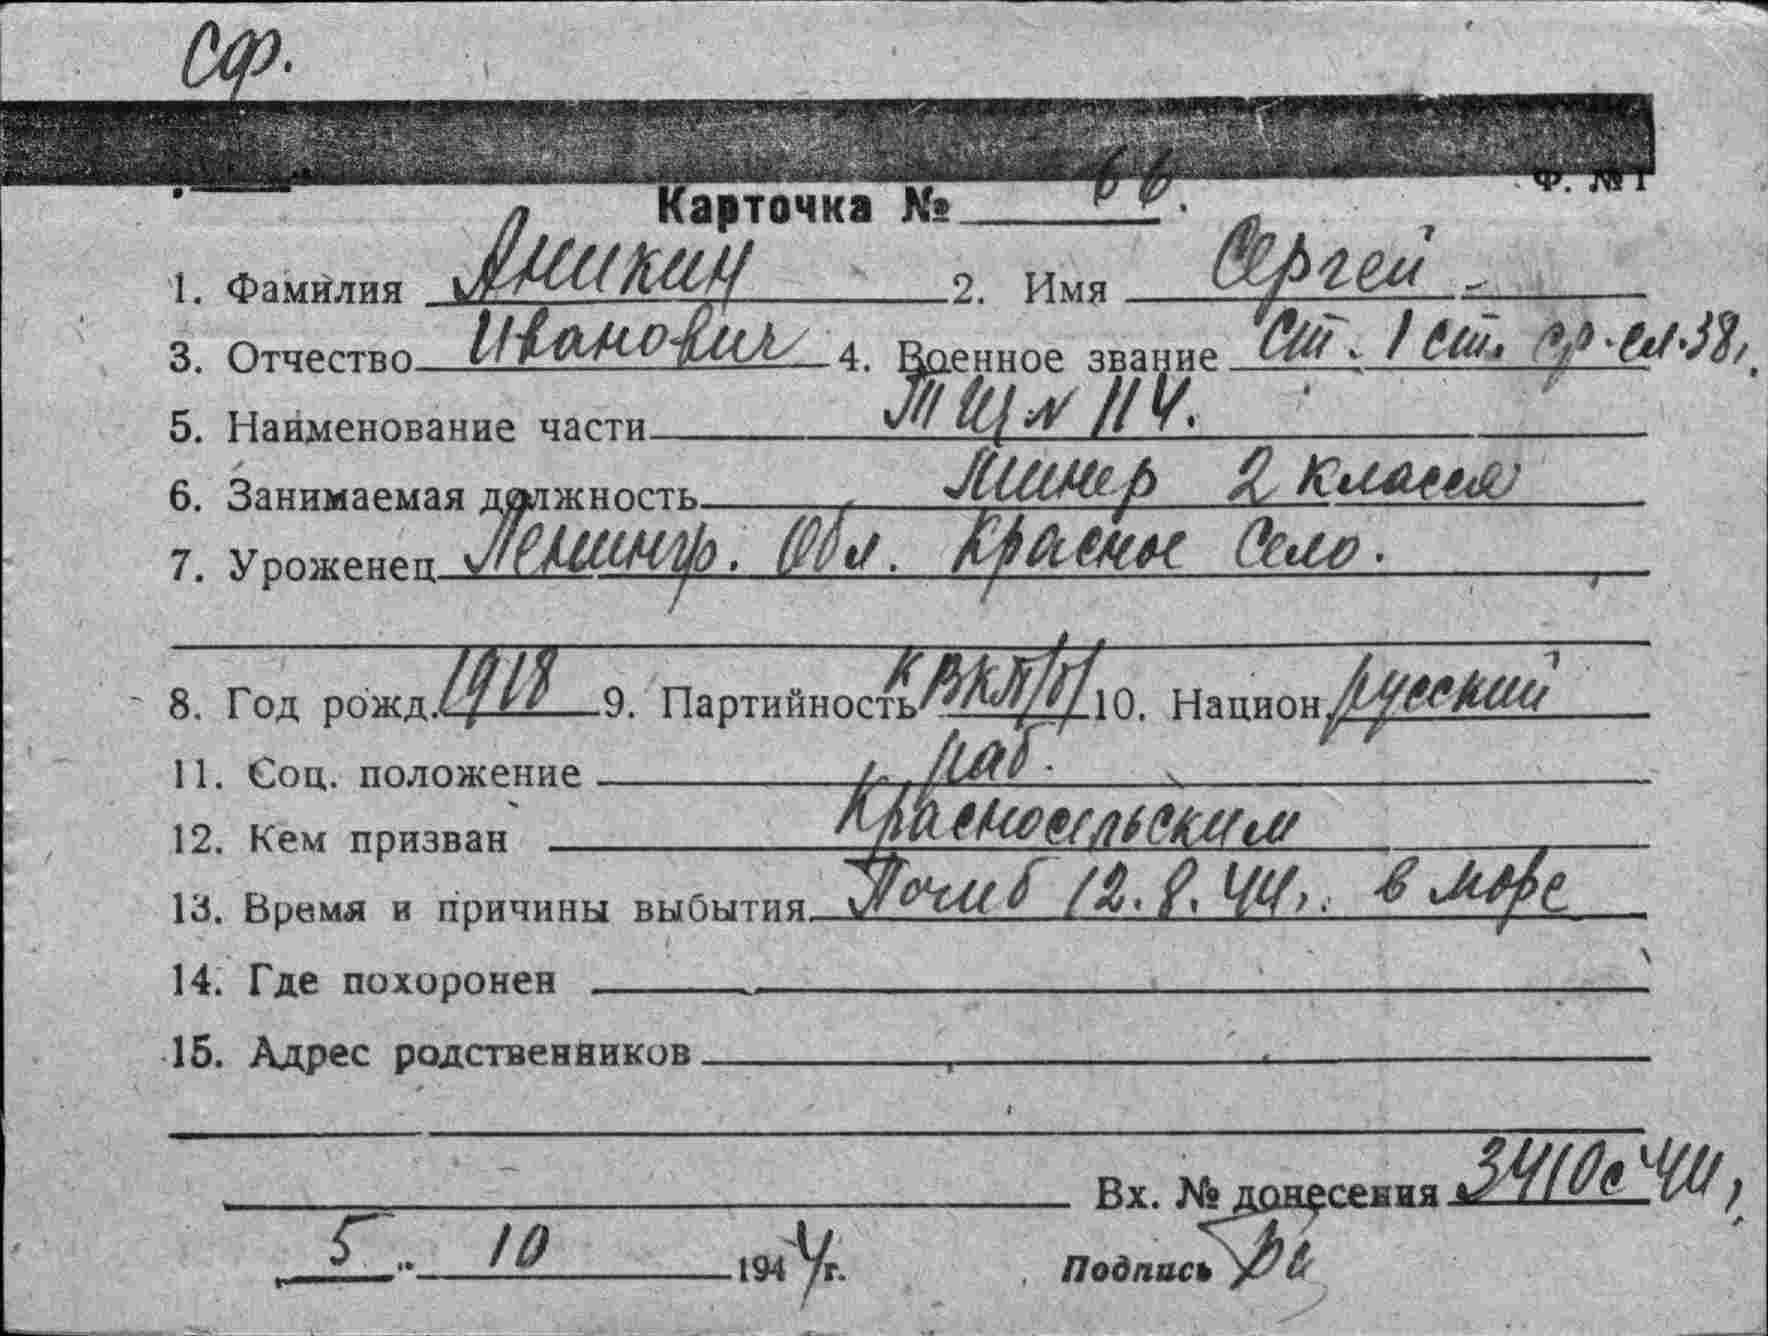 Сф.
Ф. № 1
Карточка № 66.
1. Фамилия Аникин 2. Имя Сергей
3. Отчество Иванович 4. Военное звание Ст. 1 ст. ср. сл. 38,
5. Наименование части ТЩ № 114.
6. Занимаемая должность Минер 2 класса
7. Уроженец Ленингр. Обл. Красное Село.
8. Год рожд. 1918 9. Партийность К ВКП/б/ 10. Национ. русский
11. Соц. положение раб.
12. Кем призван Красносельским
13. Время и причины выбытия Погиб 12.8.44г. в море
14. Где похоронен
15. Адрес родственников
Вх. № донесения 3410с 44,
5 " 10 1944г. Подпись